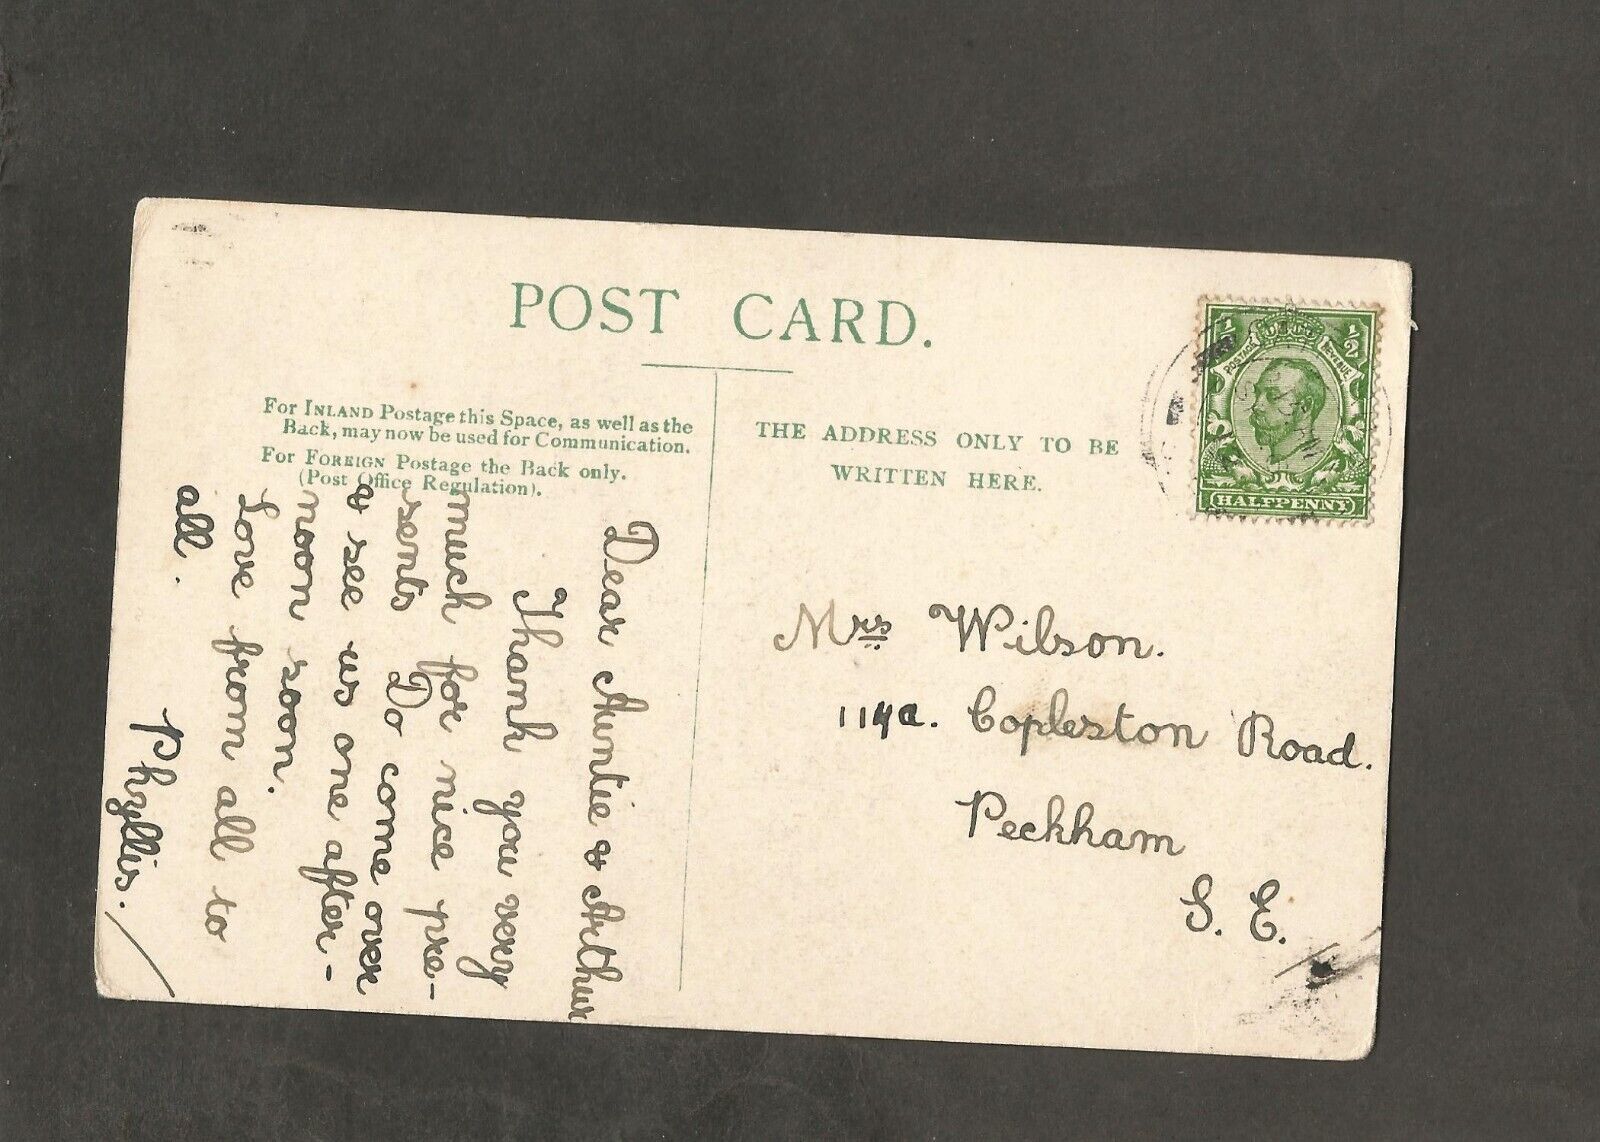 POST CARD.
For INLAND Postage this Space, as well as the
Back, may now be used for Communication.
For FOREIGN Postage the Back only.
(Post Office Regulation).
THE ADDRESS ONLY TO BE
WRITTEN HERE.
1/2 1/2
POSTAGE REVENUE
HALFPENNY
Dear Auntie & Arthur
Thank you very
much for nice pre-
sents Do come over
& see us one after-
noon soon.
Love from all to
all.
Phyllis.
Mrs Wilson.
114a. Copleston Road.
Peckham
S. E.